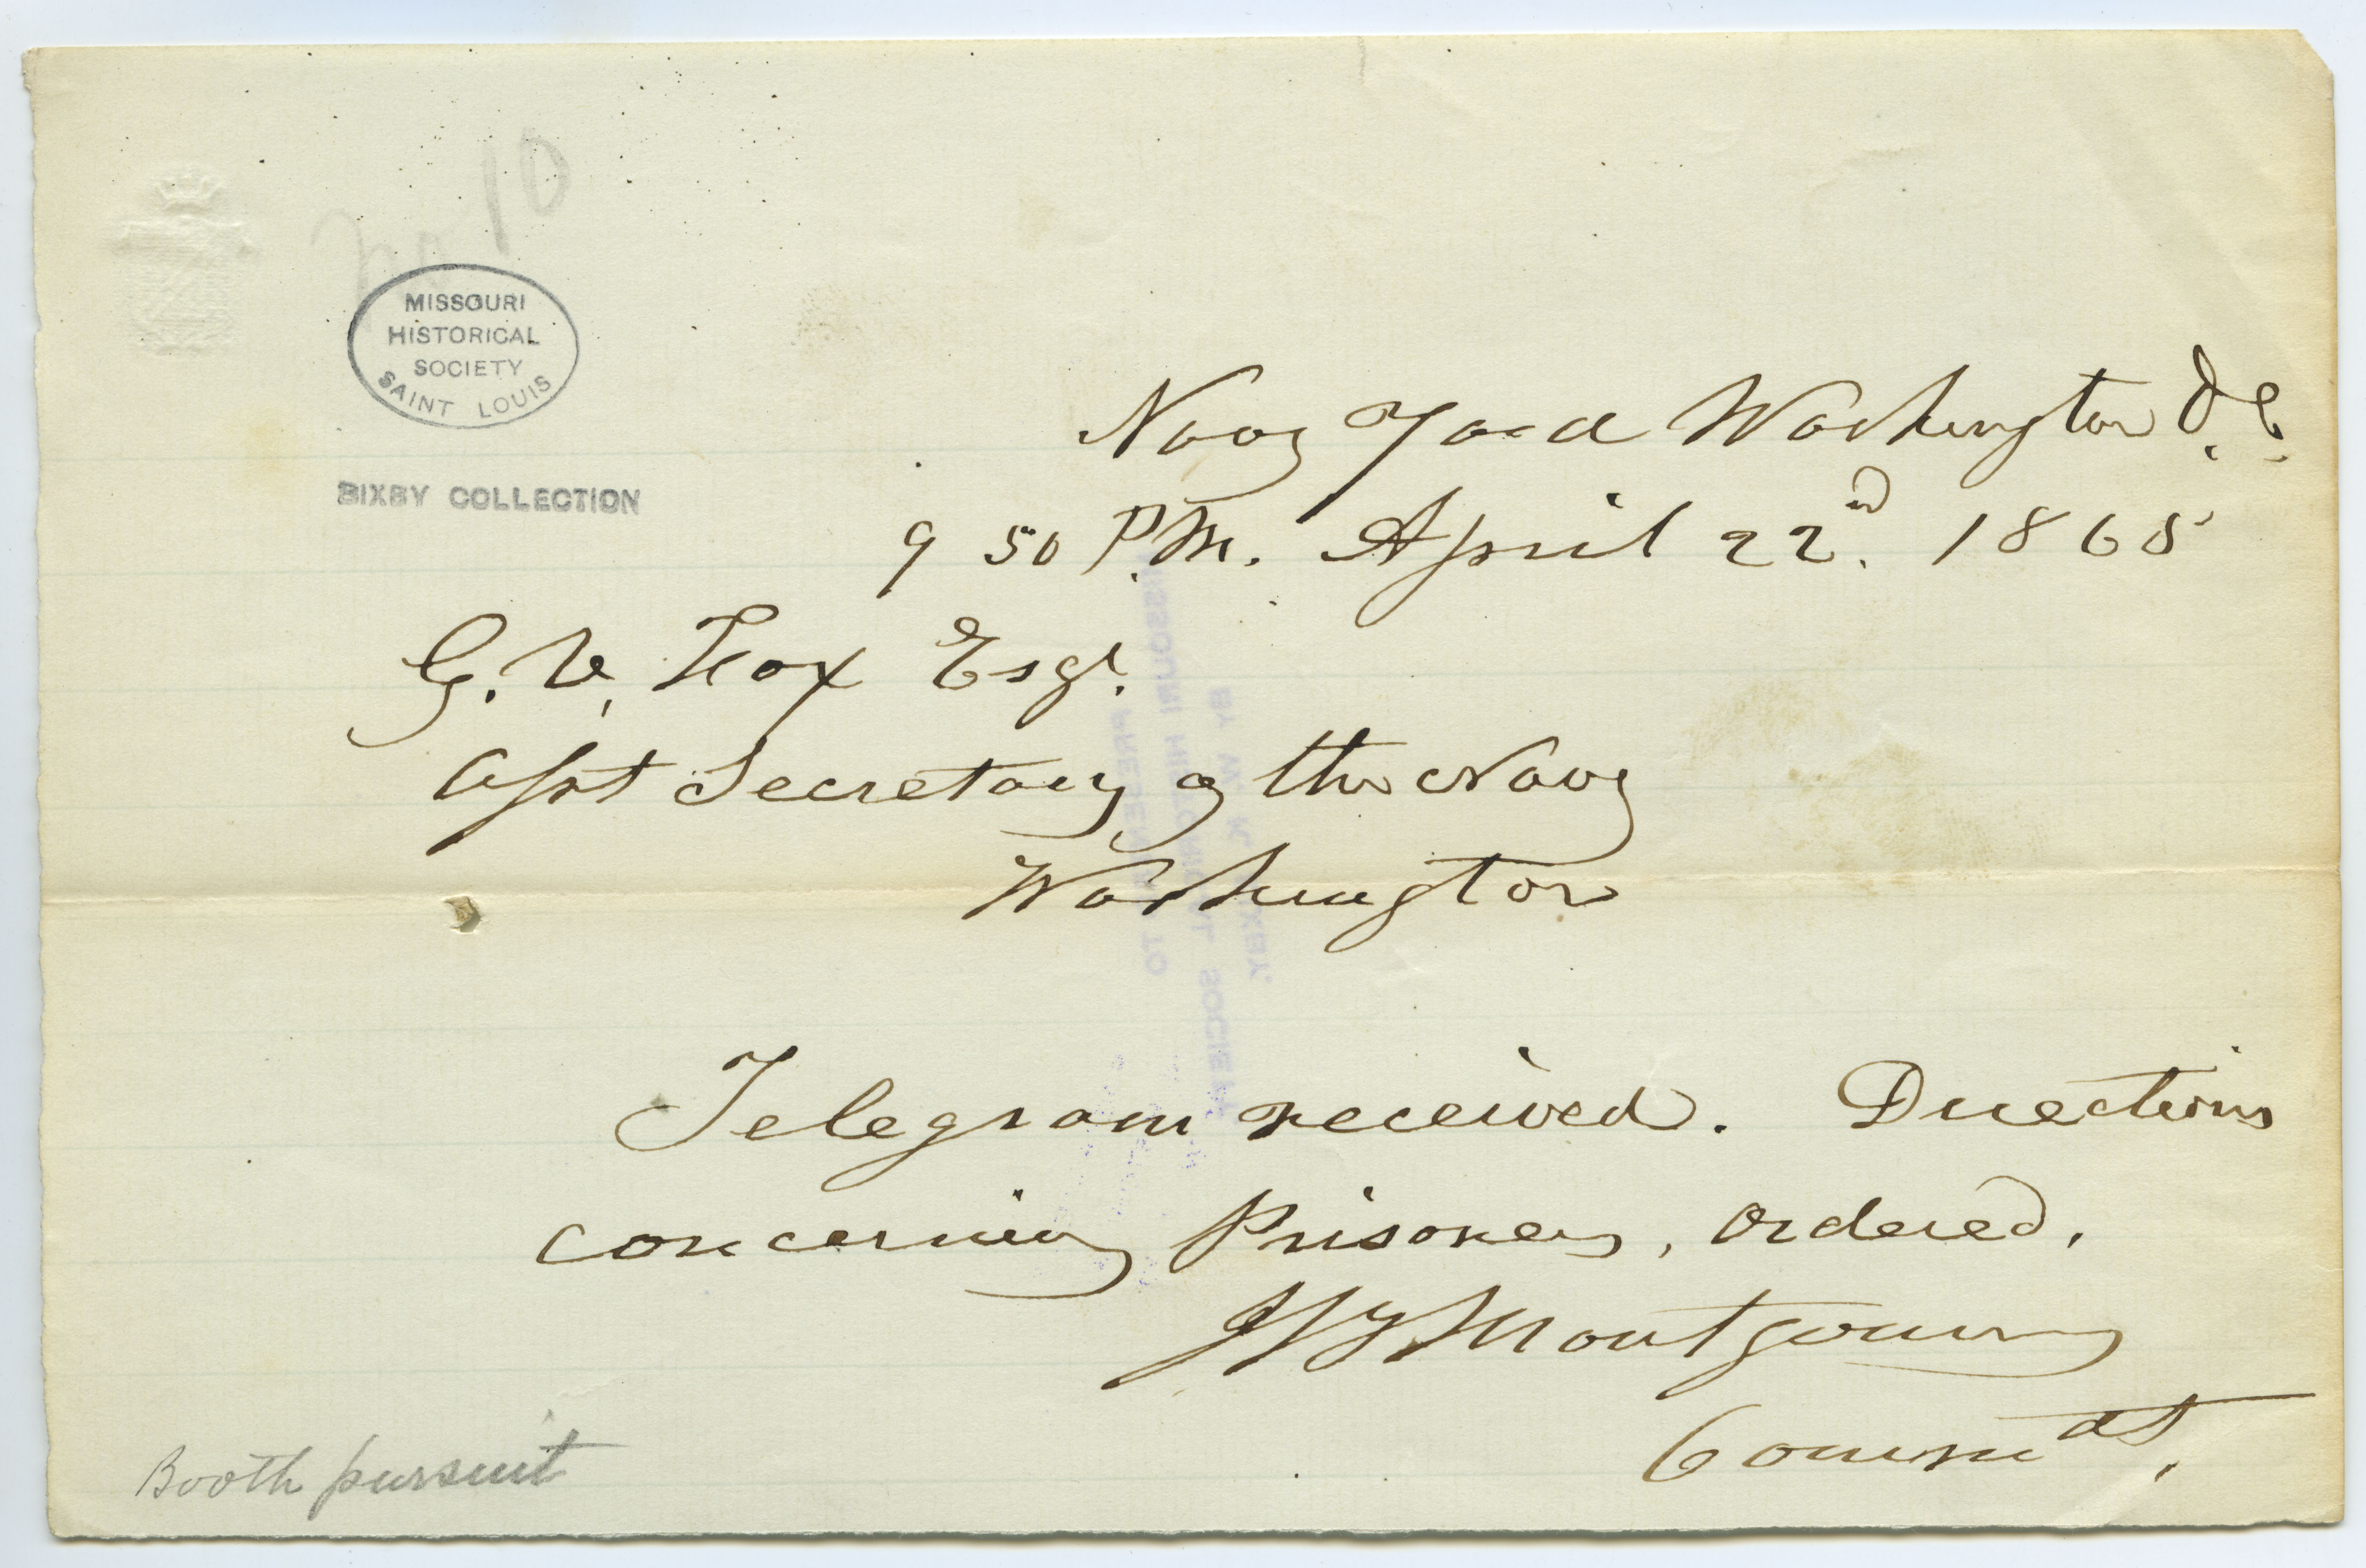 No 10
MISSOURI
HISTORICAL
SOCIETY
SAINT LOUIS
BIXBY COLLECTION
Navy Yard Washington D.C.
9 50 P.M. April 22nd. 1865
G. V. Fox Esqr.
Asst Secretary of the Navy
Washington
Telegram received. Directions
concerning Prisoners, ordered.
Montgomery
Commdt.
Booth pursuit
PRESENTED TO
MISSOURI HISTORICAL SOCIETY
BY W. K. BIXBY.